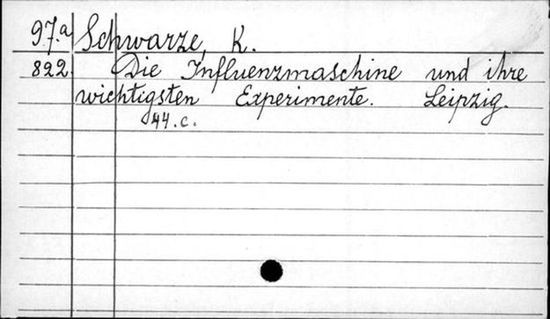 97.a Schwarze, K.
822. Die Influenzmaschine und ihre
wichtigsten Experimente. Leipzig.
44.c.